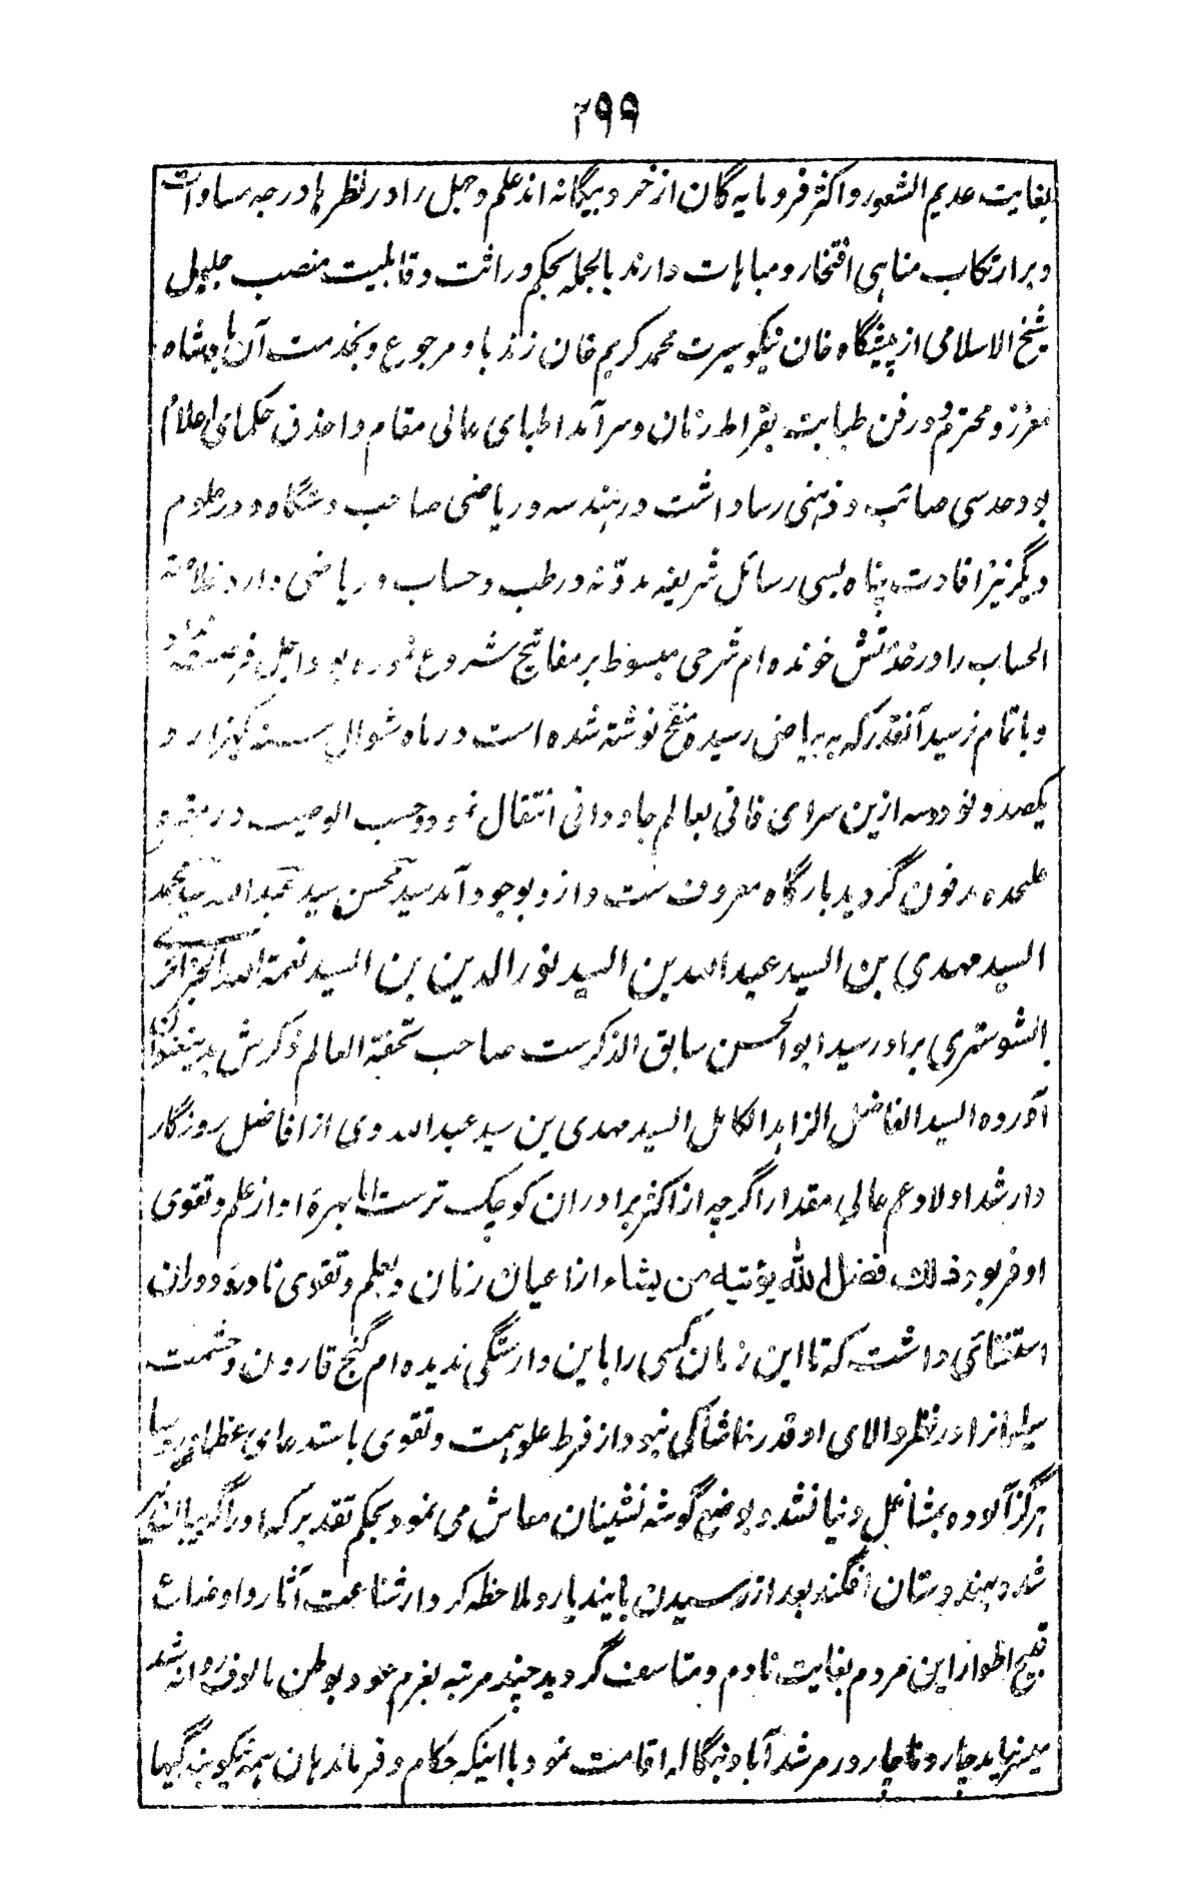 ۲۹۹
بغایت عدیم الشعور و اکثر فرومایه گان از خرد بیگانه اند علم و جهل را در نظرها درجه مساوات
و بر ارتکاب مناهی افتخار و مباهات دارند بالجمله بحکم وراثت و قابلیت منصب جلیل
شیخ الاسلامی از پیشگاه خان نیکو سیرت محمد کریم خان زند باو مرجوع و بخدمت آن پادشاه
معزز و محترم و در فن طبابت بقراط زمان و سرآمد اطبای عالی مقام و احذق حکمای اعلام
بود حدسی صائب و ذهنی رسا داشت در هندسه و ریاضی صاحب دستگاه و در علوم
دیگر نیز افادت پناه بسی رسائل شریفه مدوّنه در طب و حساب و ریاضی دارد خلاصة
الحساب را در خدمتش خونده ام شرحی مبسوط بر مفاتیح شروع نموده بود اجل فرصت نداد
و باتمام نرسید آنقدر که به بیاضی رسیده منقح نوشته شده است در ماه شوال سنه یکهزار و
یکصد و نود و سه ازین سرای فانی بعالم جاودانی انتقال نمود و حسب الوصیت در مقبره
علحده مدفون گردید بارگاه معروف ست و ازو بوجود آمد سید محسن سید عبدالله سید محمد
السید مهدی بن السید عبدالله بن السید نورالدین بن السید نعمة الله الجزائری
الشوشتری برادر سید ابوالحسن سابق الذکرست صاحب تحفة العالم ذکرش بدینعنوان
آورده السید الفاضل الزاهد الکامل السید مهدی بن سید عبدالله وی از افاضل روزگار
و ارشد اولاد عم عالی مقدار اگرچه از اکثر برادران کوچک ترست اما بهرهٔ او از علم و تقوی
اوفر بود ذلک فضل الله یؤتیه من یشاء از اعیان زمان و بعلم و تقوی نادرهٔ دوران
استغنائی داشت که تا این زمان کسی را باین وارستگی ندیده ام گنج قارون و حشمت
سلیمانرا در نظر والای او قدر خاشاکی نبود از فرط علو همت و تقوی باستدعای عظمای روسا
هرگز آلوده بمشاغل دنیا نشد و بوضع گوشه نشینان معاش می نمود بحکم تقدیر که او را گریبانگیر
شد و بهندوستان افکند بعد از رسیدن باینڈیار و ملاحظه کردار شناعت آثار و اوضاع
قبیح اطوار این مردم بغایت نادم و متاسف گردید چند مرتبه بعزم عود بوطن مالوف روانه شد
میسر نیامد چار و ناچار در مرشدآباد بنگاله اقامت نمود با اینکه حکام و فرماندهان همه نیکو بندگیها